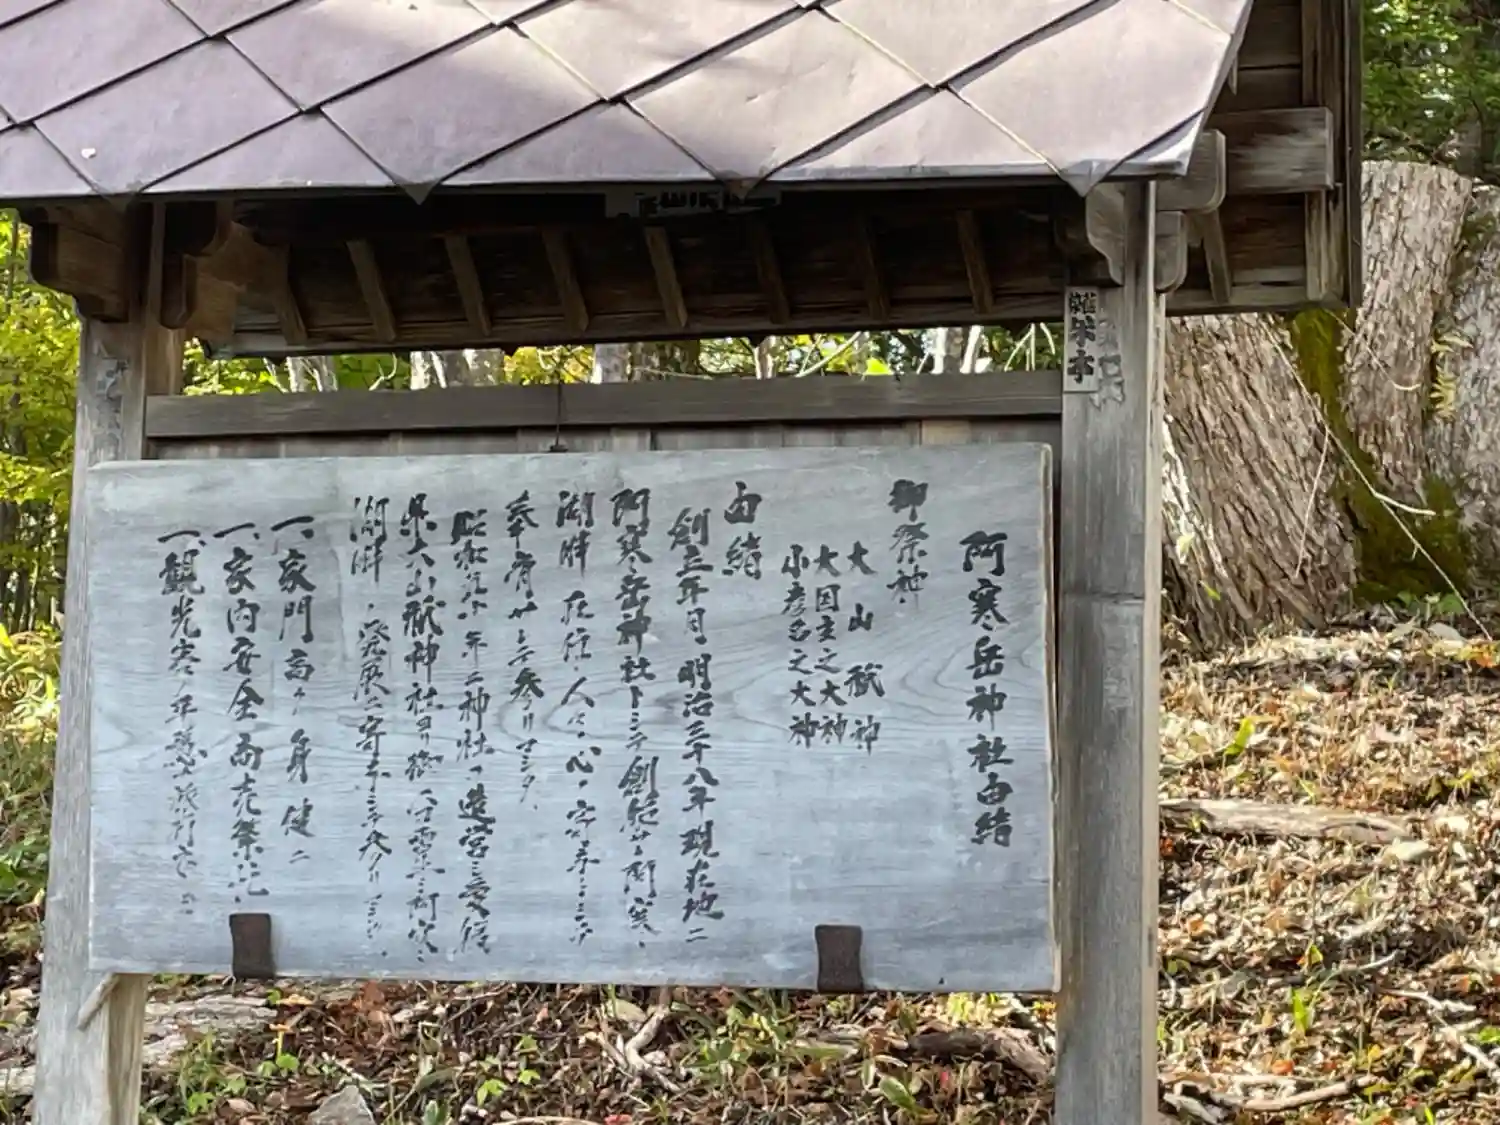 阿寒岳神社由緒
御祭神
大山祇神
大国主之大神
小彦名之大神
由緒
創立年月 明治三十八年現在地ニ
阿寒岳神社トシテ創祀サレ阿寒
湖畔在住人々心寄
奉斎サレテ参リマシタ
昭和 年ニ神社ヲ造営シ愛媛
県大山祇神社ヨリ御分霊 阿寒
湖畔ノ発展ニ寄与シテ参リマシタ
一、家門高ク身健ニ
一、家内安全商売繁
一、観光客ノ年
雑午亭